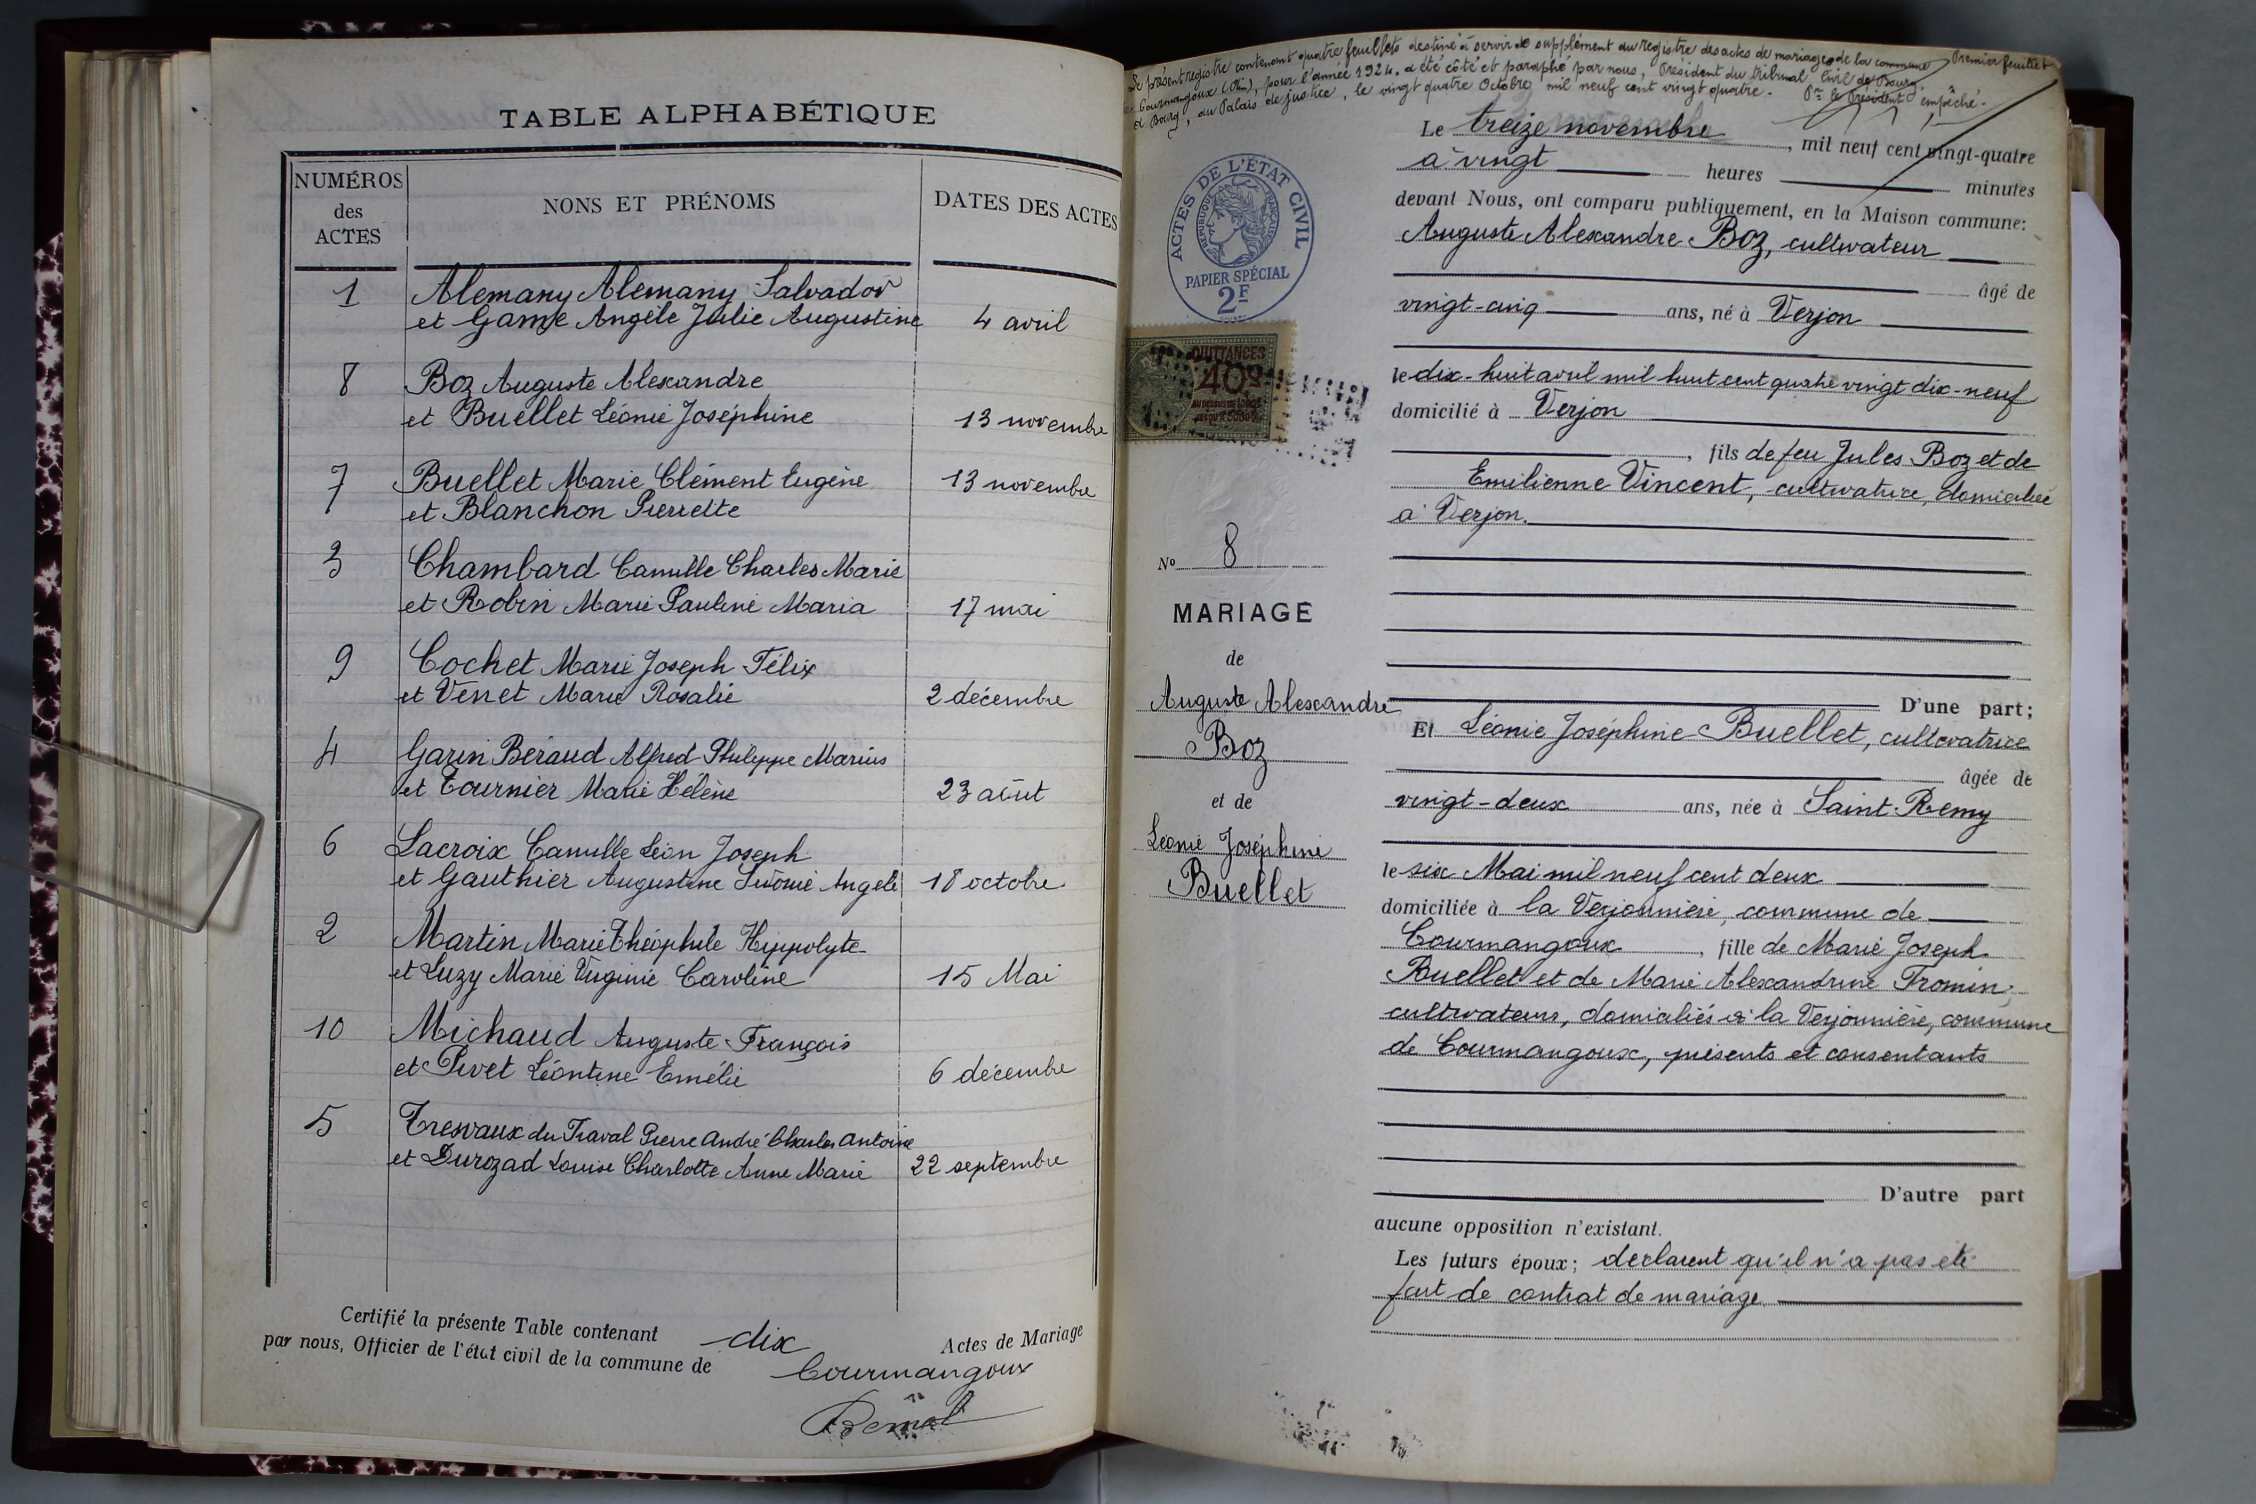 TABLE ALPHABÉTIQUE
NUMÉROS des ACTES
NONS ET PRÉNOMS
DATES DES ACTES
1 Alemany Alemany Salvador
et Game Angèle Julie Augustine 4 avril
8 Boz Auguste Alexandre
et Buellet Léonie Joséphine 13 novembre
7 Buellet Marie Clément Eugène 13 novembre
et Blanchon Pierrette
3 Chambard Camille Charles Marie
et Robin Marie Pauline Maria 17 mai
9 Cochet Marie Joseph Félix
et Venet Marie Rosalie 2 décembre
4 Garin Béraud Alfred Philippe Marius
et Tournier Marie Hélène 23 août
6 Lacroix Camille Léon Joseph
et Gauthier Augustine Sidonie Angèle 18 octobre
2 Martin Marie Théophile Hippolyte
et Luzy Marie Virginie Caroline 15 Mai
10 Michaud Auguste François
et Pivet Léontine Emélie 6 décembre
5 Tresvaux du Fraval Pierre André Charles Antoine
et Durozad Louise Charlotte Anne Marie 22 septembre
Certifié la présente Table contenant dix Actes de Mariage
par nous, Officier de l'état civil de la commune de Courmangoux
Le présent registre contenant quatre feuillets destiné à servir de supplément au registre des actes de mariages de la commune Premier feuillet
de Courmangoux (Ain), pour l'année 1924, a été côté et paraphé par nous, Président du tribunal Civil de Bourg.
à Bourg, au Palais de justice, le vingt quatre Octobre mil neuf cent vingt quatre. Pr le Président empêché.
ACTES DE L'ETAT CIVIL
REPUBLIQUE FRANÇAISE
PAPIER SPÉCIAL
2F
QUITTANCES
40c
No 8
MARIAGE
de
Auguste Alexandre
Boz
et de
Léonie Joséphine
Buellet
Le treize novembre, mil neuf cent vingt-quatre
à vingt heures minutes
devant Nous, ont comparu publiquement, en la Maison commune:
Auguste Alexandre Boz, cultivateur
âgé de
vingt-cinq ans, né à Verjon
le dix-huit avril mil huit cent quatre vingt dix-neuf
domicilié à Verjon
, fils de feu Jules Boz et de
Emilienne Vincent, cultivatrice, domiciliée
à Verjon.
D'une part;
Et Léonie Joséphine Buellet, cultivatrice
âgée de
vingt-deux ans, née à Saint-Remy
le six Mai mil neuf cent deux
domiciliée à la Verjonnière, commune de
Courmangoux, fille de Marie Joseph
Buellet et de Marie Alexandrine Fromin,
cultivateurs, domiciliés à la Verjonnière, commune
de Courmangoux, présents et consentants
D'autre part
aucune opposition n'existant.
Les futurs époux; déclarent qu'il n'a pas été
fait de contrat de mariage